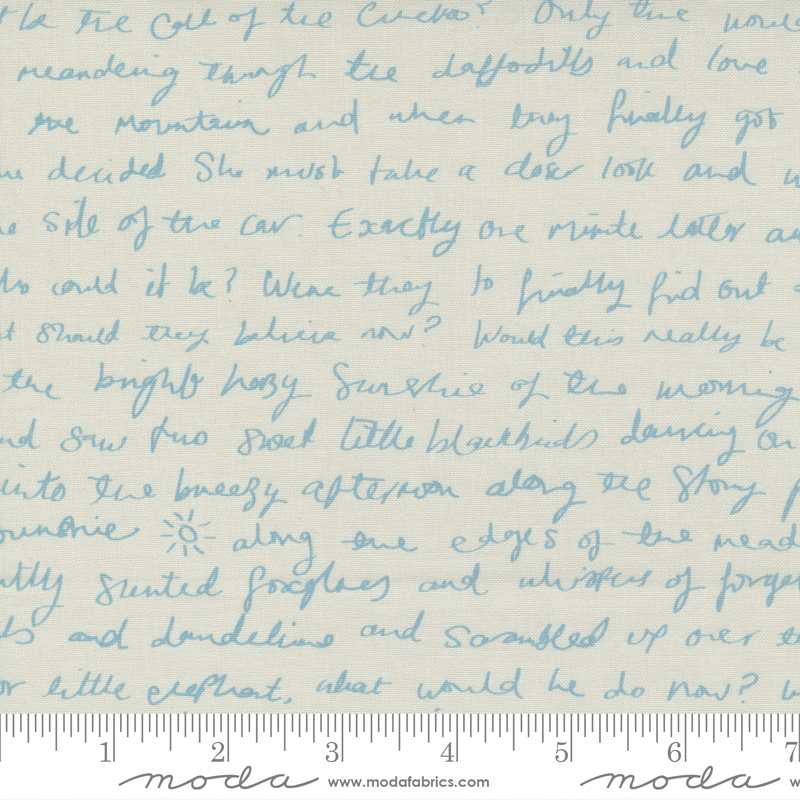 the call of the Cuckoo? Only time would
meandering through the daffodills and love
the mountain and when they finally got
decided She must take a closer look and
side of the car. Exactly one minute later
who could it be? Were they to finally find out
should they believe now? Would this really be
the bright hazy Sunshine of the morning
and saw two sweet little blackbirds dancing on
into the breezy afternoon along the Stony
Sunshine along the edges of the
scented foxgloves and whispers of
and dandelions and scrambled up over
or little elephant, what would he do now?
1 2 3 4 5 6 7
moda www.modafabrics.com moda w